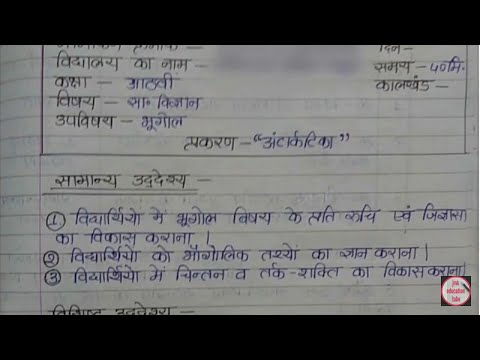 दिन-
विद्यालय का नाम -
समय - ५०मि.
कक्षा - आठवी
कालखंड-
विषय - सा० विज्ञान
उपविषय - भूगोल
प्रकरण - "अंटार्कटिका"
सामान्य उद्देश्य -
① विद्यार्थियो में भूगोल विषय के प्रति रुचि एवं जिज्ञासा
का विकास कराना ।
② विद्यार्थियो को भौगोलिक तथ्यों का ज्ञान कराना ।
③ विद्यार्थियो में चिन्तन व तर्क-शक्ति का विकास कराना।
विशिष्ट उद्देश्य -
jmk
education
tube